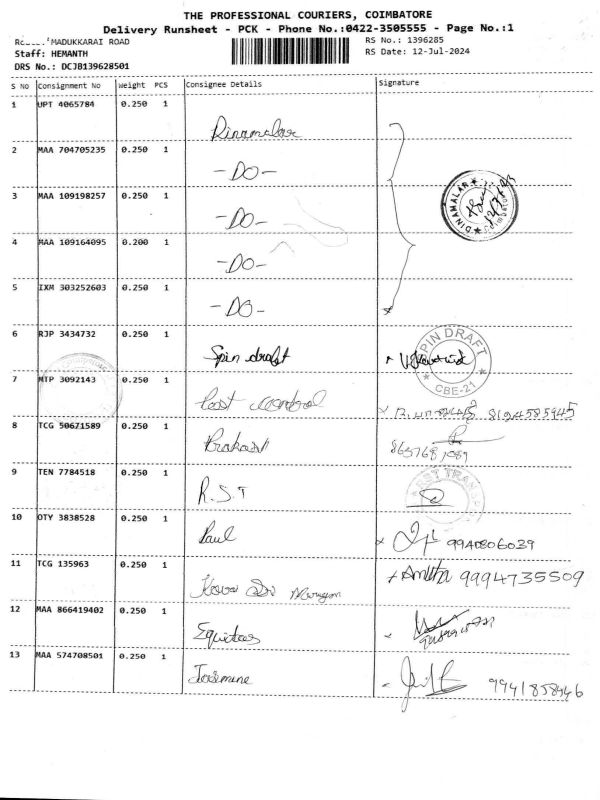 THE PROFESSIONAL COURIERS, COIMBATORE
Delivery Runsheet - PCK - Phone No.:0422-3505555 - Page No.:1
MADUKKARAI ROAD
RS No.: 1396285
Staff: HEMANTH
RS Date: 12-Jul-2024
DRS No.: DCJB139628501
S No Consignment No Weight PCS Consignee Details Signature
1 UPT 4065784 0.250 1 Dinamalar
2 MAA 704705235 0.250 1 -DO-
DINAMALAR
3 MAA 109198257 0.250 1 -DO-
4 MAA 109164095 0.200 1 -DO-
5 IXM 303252603 0.250 1 -DO-
6 RJP 3434732 0.250 1 Spin draft
SPIN DRAFT
CBE-21
7 MTP 3092143 0.250 1 Pest control 8124585945
8 TCG 50671589 0.250 1 Prakash
9 TEN 7784518 0.250 1 R.S.T
10 OTY 3838528 0.250 1 Paul 9940806039
11 TCG 135963 0.250 1 Kovai Sri Murugan Amitha 9994735509
12 MAA 866419402 0.250 1 Equitas
13 MAA 574708501 0.250 1 Jasmine 9941858946